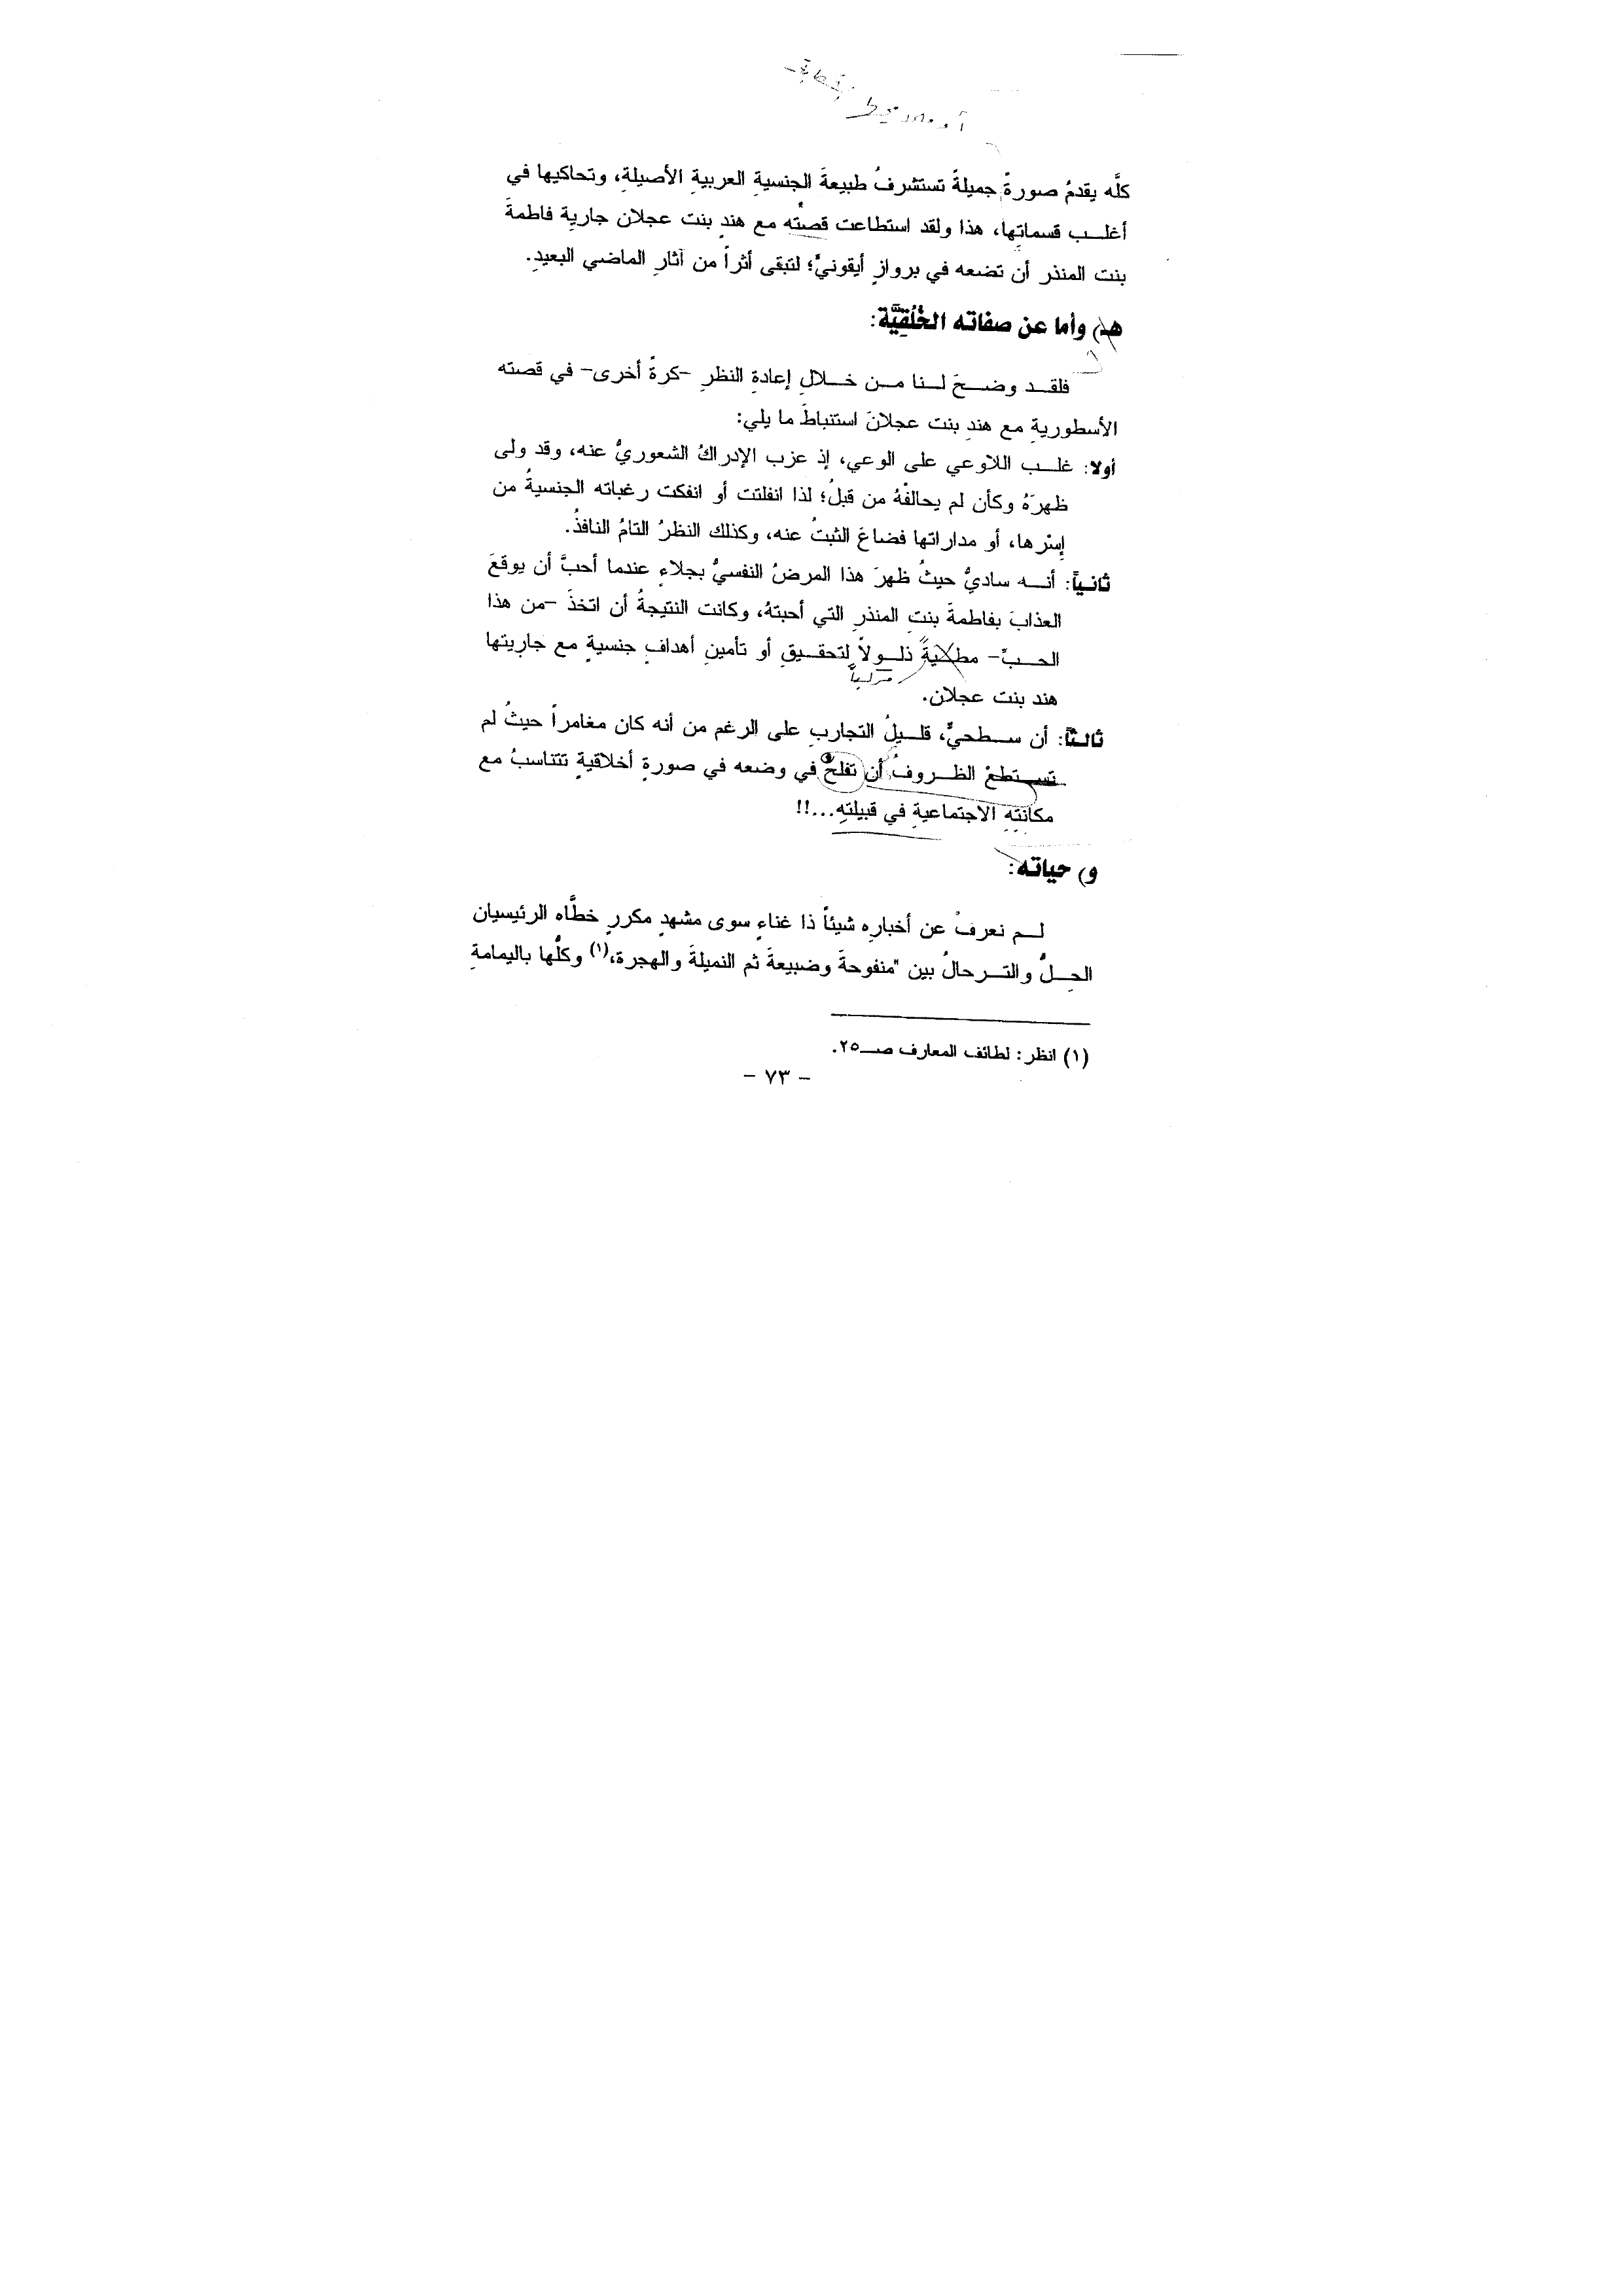 كلَّه يقدمُ صورةً جميلةً تستشرفُ طبيعةَ الجنسيةِ العربيةِ الأصيلةِ، وتحاكيها في
أغلب قسماتِها، هذا ولقد استطاعت قصتُه مع هندٍ بنت عجلان جاريةِ فاطمةَ
بنت المنذر أن تضعه في بروازٍ أيقونيٍّ؛ لتبقى أثراً من آثارِ الماضي البعيدِ.
هـ) وأما عن صفاته الخُلُقِيَّة:
فلقد وضحَ لنا من خلالِ إعادةِ النظرِ -كرةً أخرى- في قصته
الأسطوريةِ مع هندِ بنت عجلانَ استنباطَ ما يلي:
أولا: غلب اللاوعي على الوعي، إذ عزب الإدراكُ الشعوريُّ عنه، وقد ولى
ظهرَهُ وكأن لم يحالفْهُ من قبلُ؛ لذا انفلتت أو انفكت رغباته الجنسيةُ من
إسْرها، أو مداراتها فضاعَ الثبتُ عنه، وكذلك النظرُ التامُ النافذُ.
ثانياً: أنه ساديٌّ حيثُ ظهرَ هذا المرضُ النفسيُّ بجلاءٍ عندما أحبَّ أن يوقعَ
العذابَ بفاطمةَ بنتِ المنذرِ التي أحبتهُ، وكانت النتيجةُ أن اتخذَ -من هذا
الحبِّ- مطيةً ذلولاً لتحقيقِ أو تأمينِ أهدافٍ جنسيةٍ مع جاريتها
هند بنت عجلان.
ثالثاً: أن سطحيٌّ، قليلُ التجاربِ على الرغم من أنه كان مغامراً حيثُ لم
تستطعْ الظروفُ أن تفلحَ في وضعه في صورةٍ أخلاقيةٍ تتناسبُ مع
مكانتِهِ الاجتماعيةِ في قبيلتِهِ...!!
و) حياته:
لم نعرفْ عن أخبارِه شيئاً ذا غناءٍ سوى مشهدٍ مكررٍ خطَّاه الرئيسيان
الحِلُّ والترحالُ بين "منفوحةَ وضبيعةَ ثم النميلةَ والهجرة،(١) وكلُّها باليمامةِ
(١) انظر: لطائف المعارف صـ٢٥.
- ٧٣ -